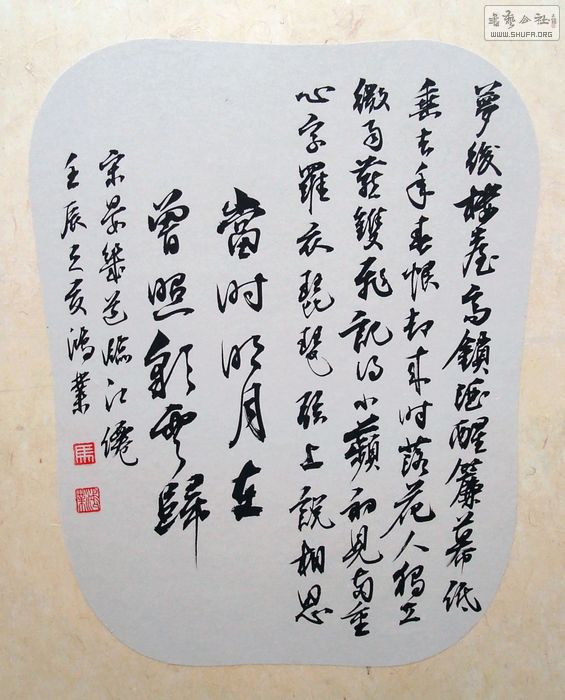 夢後樓臺高鎖酒醒簾幕低
垂去年春恨却來时落花人獨立
微雨燕雙飛記得小蘋初見兩重
心字羅衣琵琶弦上說相思
當时明月在
曾照彩雲歸
宋晏幾道臨江僊
壬辰之夏鴻業
馬
書藝公社
WWW.SHUFA.ORG